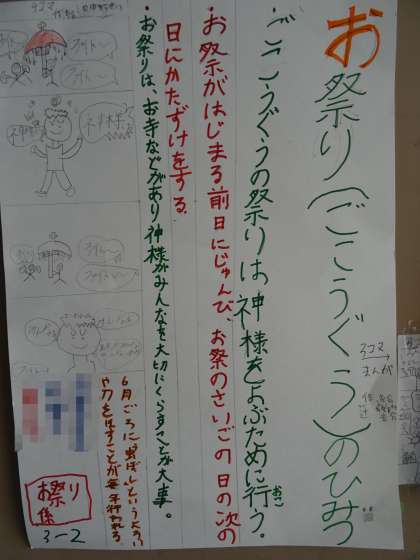 お祭り(ごこうぐう)のひみつ
・ごこうぐうの祭りは神様をよぶために行う。
おこ
・お祭がはじまる前日にじゅんび、お祭のさいごの日の次の
日にかたずけをする。
・お祭りは、お寺などがあり神様がみんなを大切にくらすことが大事。
6月ごろに虫ぼしというよろい
や刀をほすことが毎年行われる。
お祭り
係
3-2
4コマ
まんが
4コマ
神様